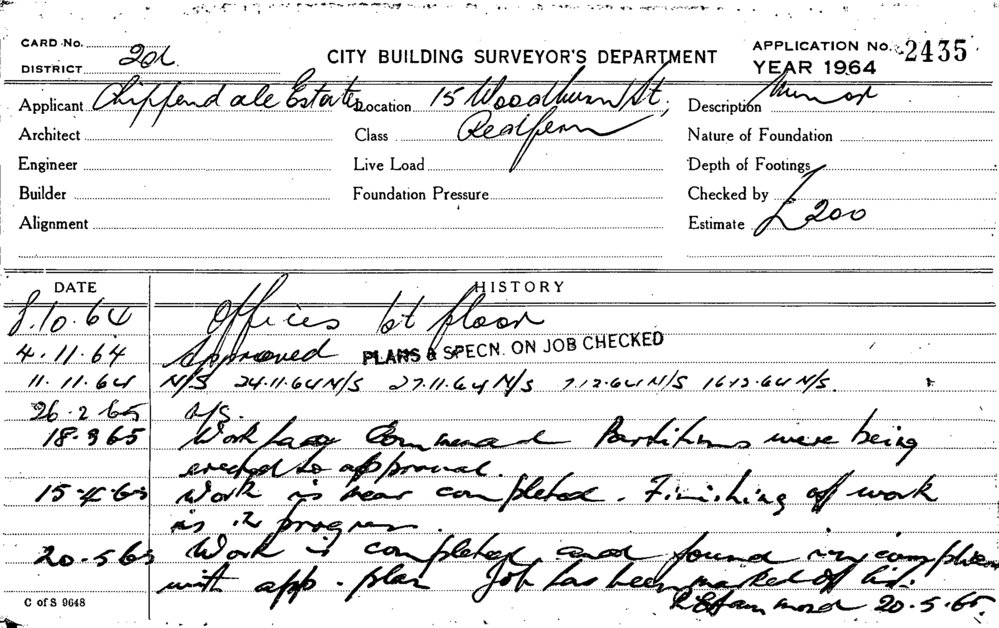 CARD No.
DISTRICT 20L
CITY BUILDING SURVEYOR'S DEPARTMENT
APPLICATION No. 2435
YEAR 1964
Applicant Chippendale Estates Location 15 Woodburn St, Description Minor
Architect Class Redfern Nature of Foundation
Engineer Live Load Depth of Footings
Builder Foundation Pressure Checked by
Alignment Estimate £200
DATE HISTORY
8.10.64 Offices 1st floor
4.11.64 Approved PLANS & SPECN. ON JOB CHECKED
11.11.64 N/S 24.11.64 N/S 27.11.64 N/S 7.12.64 N/S 16.12.64 N/S.
26.2.65 N/S.
18.3.65 Work has Commenced Partitions were being
erected to approval.
15.4.65 Work is near completed. Finishing off work
is in progress.
20.5.65 Work is completed and found in compliance
with app. plan Job has been marked off
20.5.65.
C of S 9648